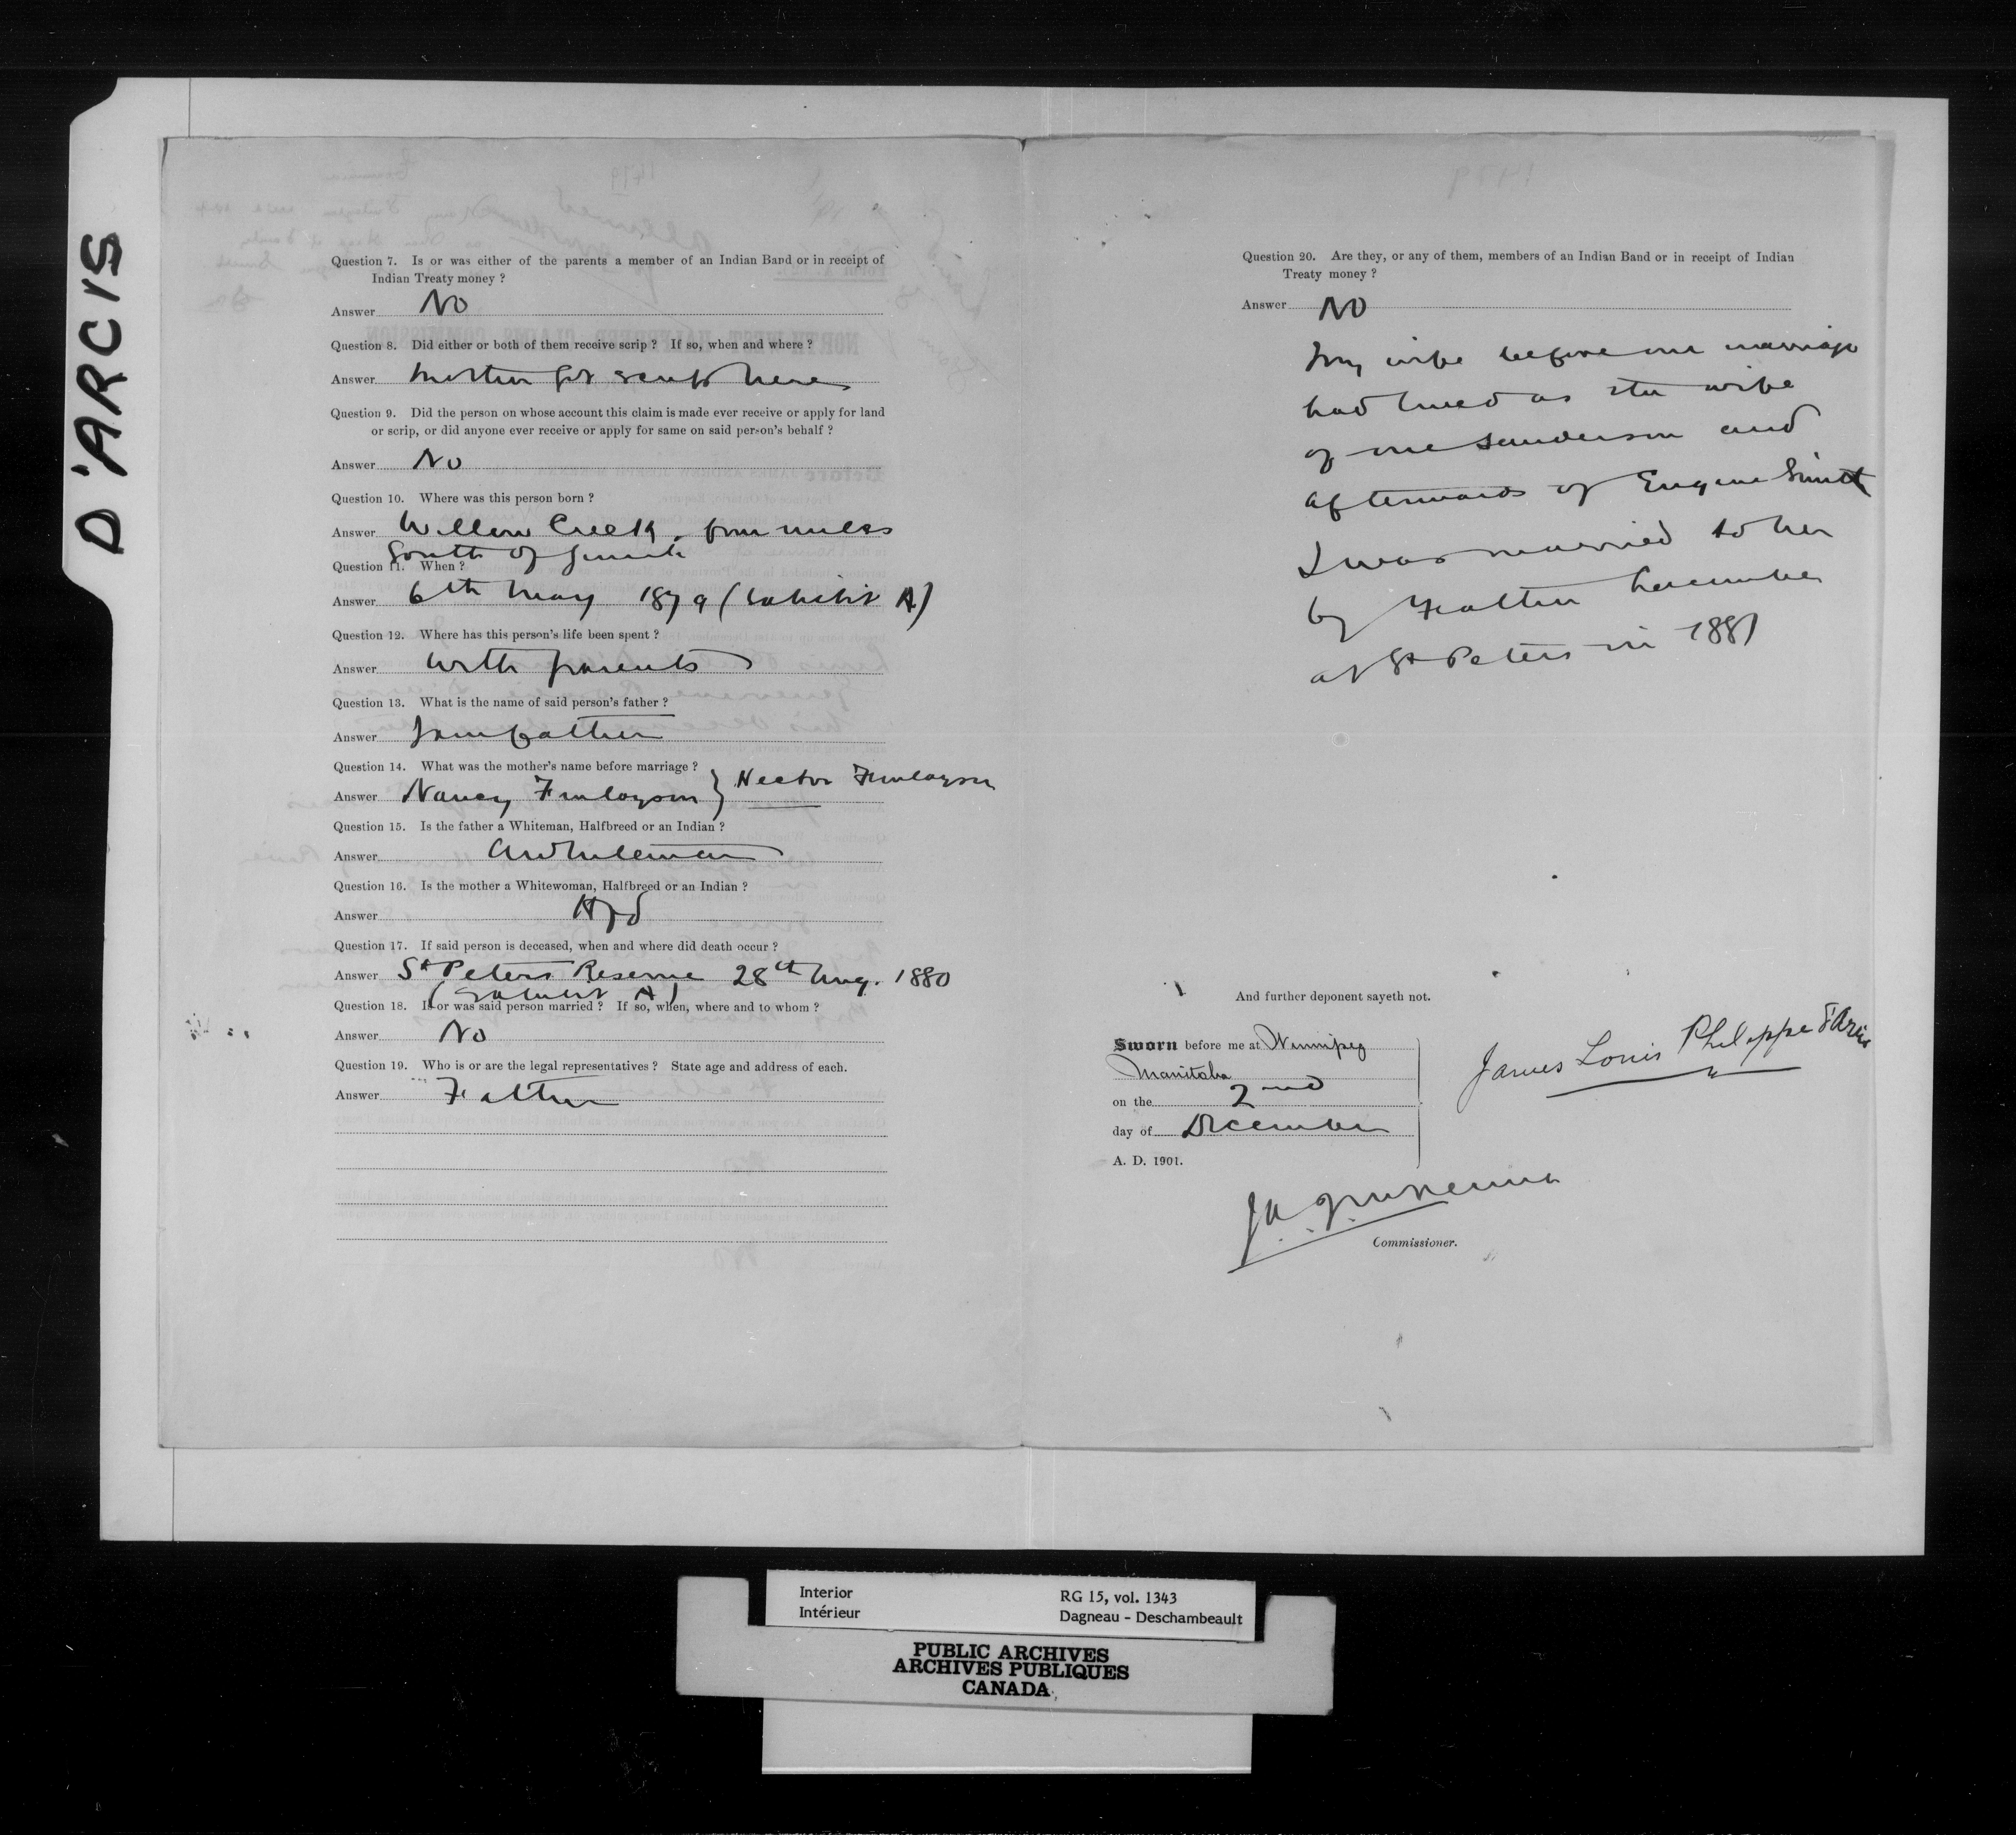 D'ARCIS
Question 7. Is or was either of the parents a member of an Indian Band or in receipt of
Indian Treaty money ?
Answer No
Question 8. Did either or both of them receive scrip ? If so, when and where ?
Answer Mother got scrip here
Question 9. Did the person on whose account this claim is made ever receive or apply for land
or scrip, or did anyone ever receive or apply for same on said person's behalf ?
Answer No
Question 10. Where was this person born ?
Answer Willow Creek, four miles
South of Gimli
Question 11. When ?
Answer 6th May 1879 (Exhibit A)
Question 12. Where has this person's life been spent ?
Answer With parents
Question 13. What is the name of said person's father ?
Answer I am father
Question 14. What was the mother's name before marriage ?
Answer Nancy Finlayson } Hector Finlayson
Question 15. Is the father a Whiteman, Halfbreed or an Indian ?
Answer A whiteman
Question 16. Is the mother a Whitewoman, Halfbreed or an Indian ?
Answer Hfd
Question 17. If said person is deceased, when and where did death occur ?
Answer St Peters Reserve 28th Aug. 1880
(Exhibit A)
Question 18. Is or was said person married ? If so, when, where and to whom ?
Answer No
Question 19. Who is or are the legal representatives ? State age and address of each.
Answer Father
Question 20. Are they, or any of them, members of an Indian Band or in receipt of Indian
Treaty money ?
Answer No
My wife before our marriage
had lived as the wife
of one Sanderson and
afterwards of Eugene Smith
I was married to her
by Father
at St Peters in 1881
And further deponent sayeth not.
Sworn before me at Winnipeg
Manitoba
on the 2nd
day of December
A. D. 1901.
James Louis Philippe d'Arcis
Commissioner.
Interior
Intérieur
RG 15, vol. 1343
Dagneau - Deschambeault
PUBLIC ARCHIVES
ARCHIVES PUBLIQUES
CANADA